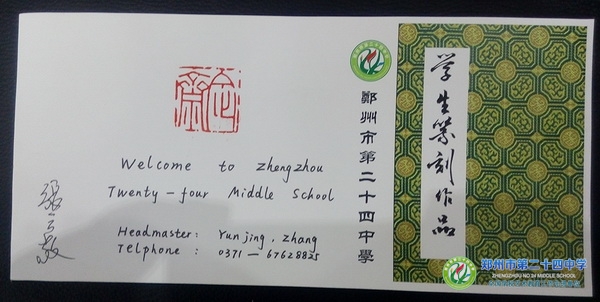 学生篆刻作品
鄭州市第二十四中學
Welcome to zhengzhou
Twenty-four Middle School
Headmaster: Yunjing. zhang
Telphone: 0371-67628825
郑州市第二十四中学
ZHENGZHOU NO 24 MIDDLE SCHOOL